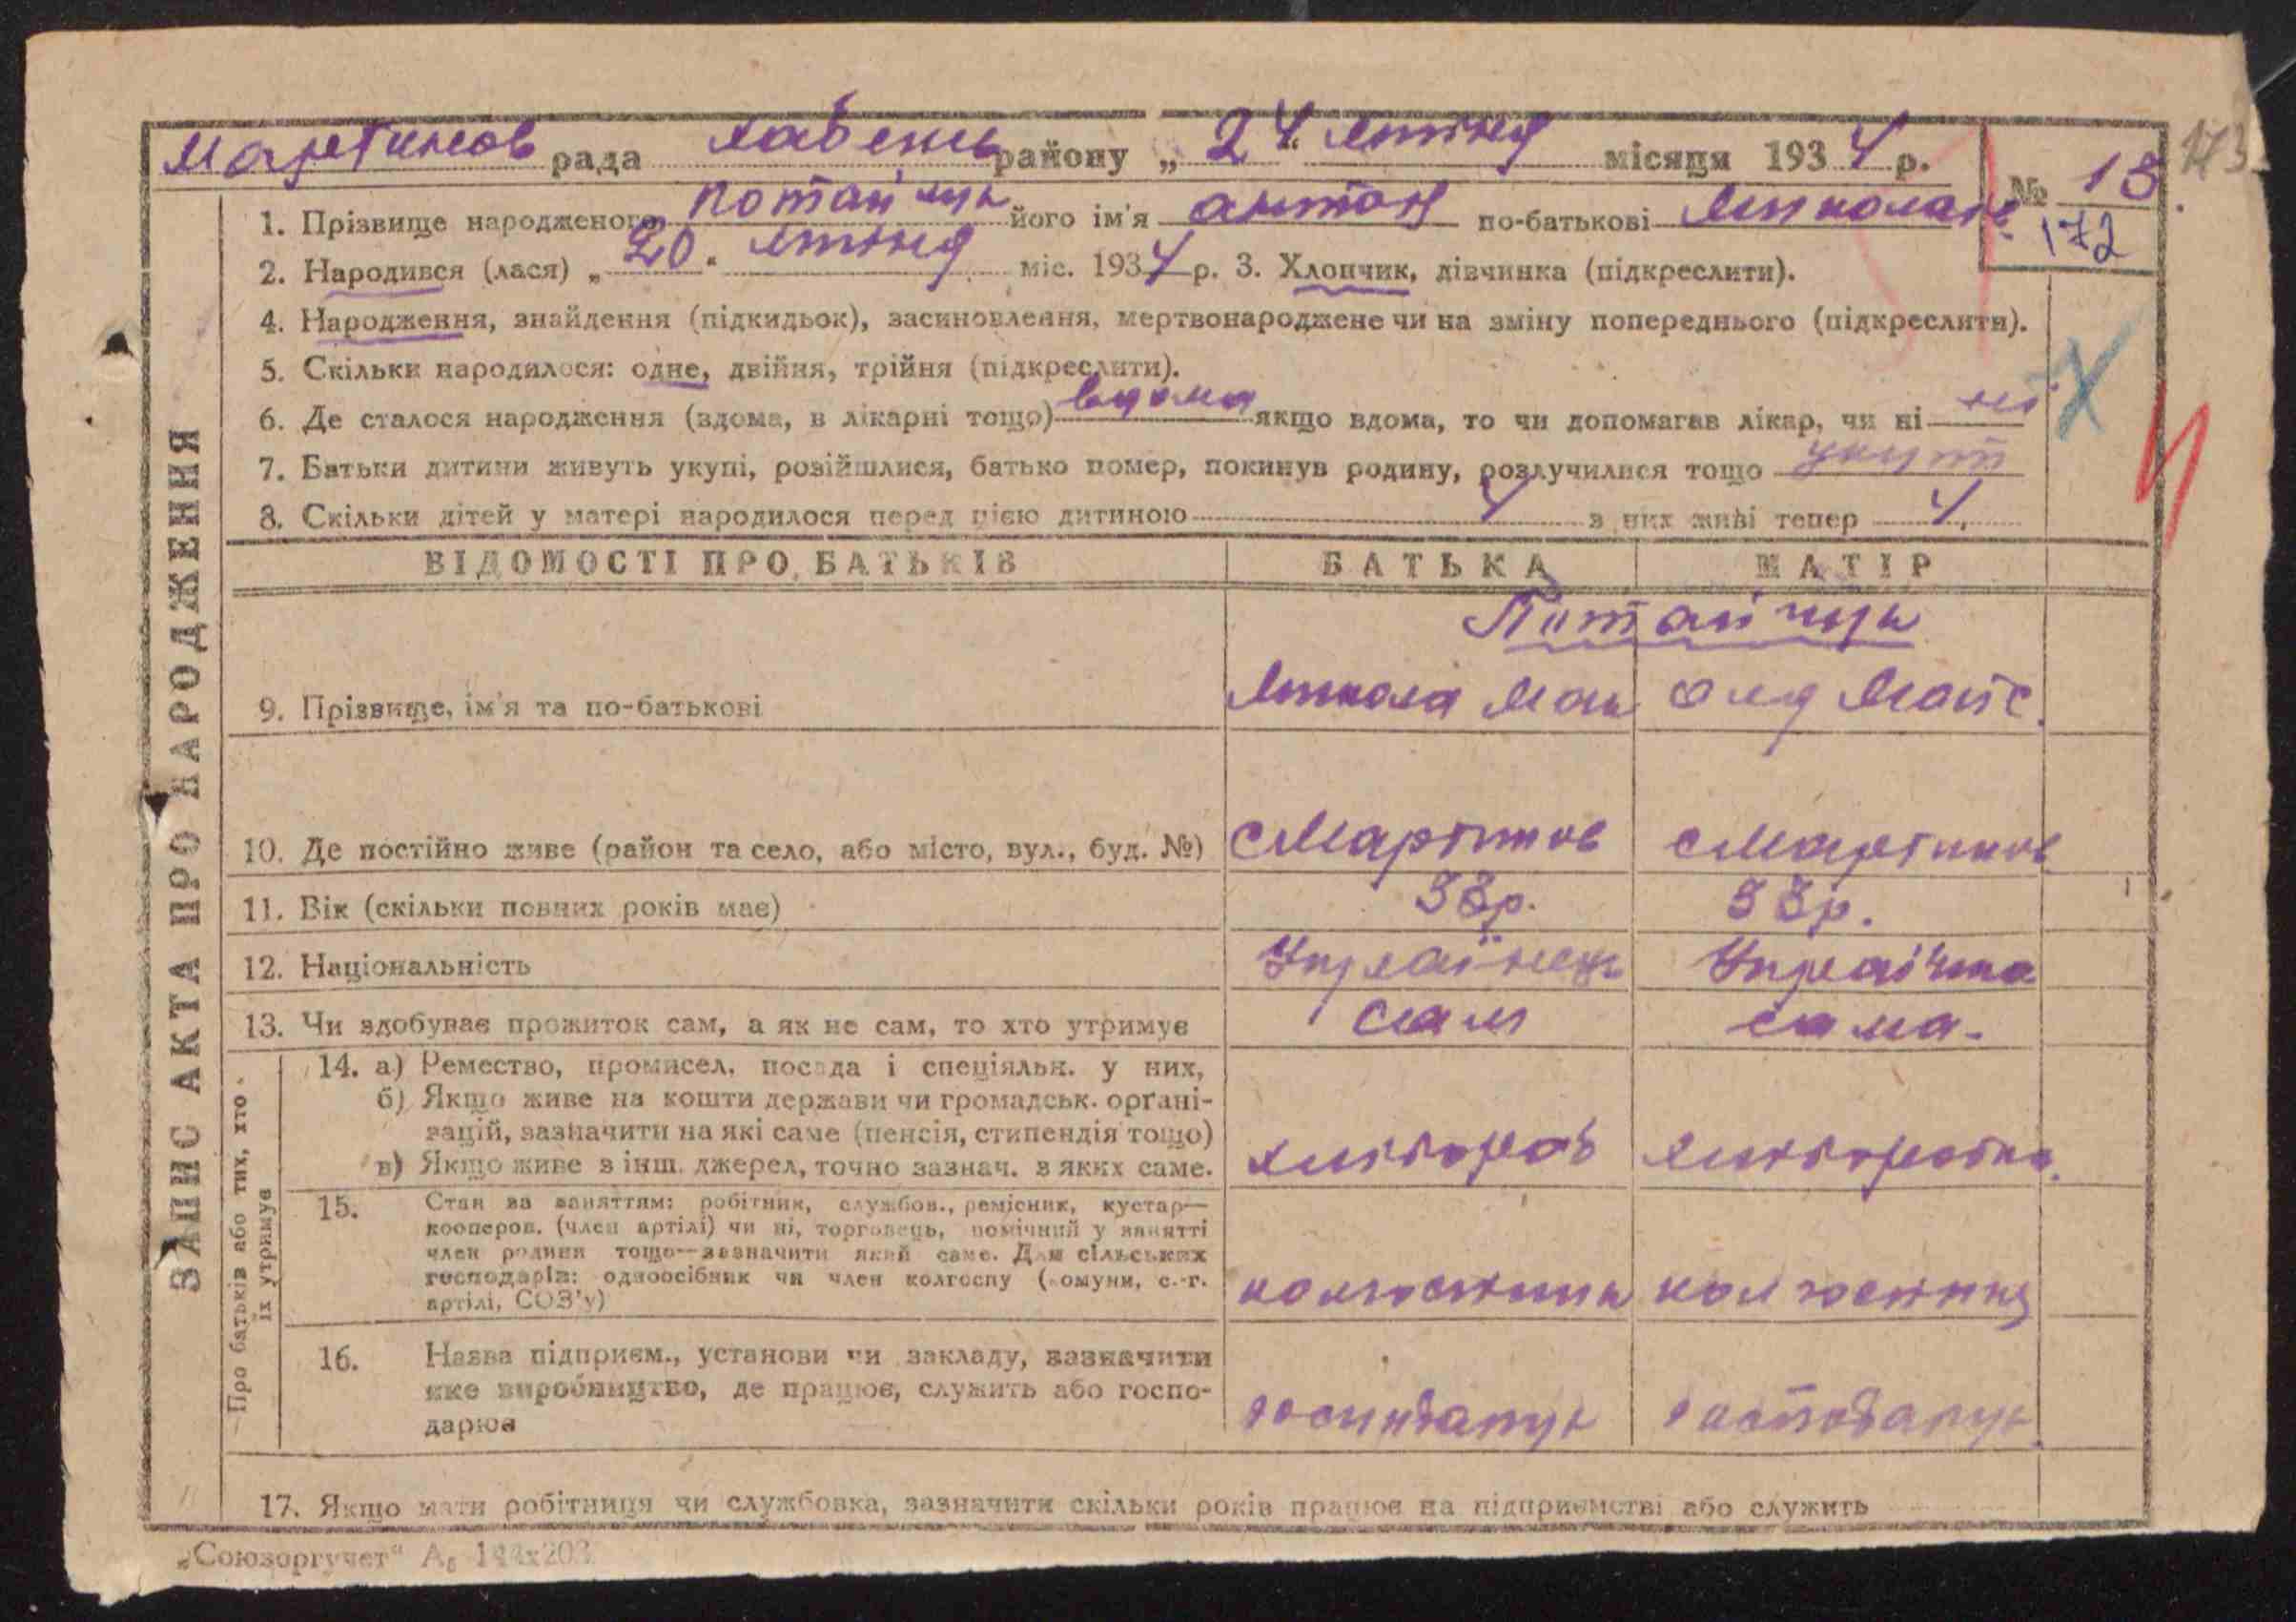 Мартинов рада хабень району „24" лютня місяця 1934 р. № 18 173
172
1. Прізвище народженого Потайчук його ім'я антон по-батькові Миколаєв
2. Народився (лася) „20" лютня міс. 1934 р. 3. Хлопчик, дівчинка (підкреслити).
4. Народження, знайдення (підкидьок), засиновлення, мертвонароджене чи на зміну попереднього (підкреслити).
5. Скільки народилося: одне, двійня, трійня (підкреслити).
6. Де сталося народження (вдома, в лікарні тощо) вдома якщо вдома, то чи допомагав лікар, чи ні ні
7. Батьки дитини живуть укупі, розійшлися, батько помер, покинув родину, розлучилися тощо укупі
8. Скільки дітей у матері народилося перед цією дитиною 4 з них живі тепер 4
ЗАПИС АКТА ПРО НАРОДЖЕННЯ
ВІДОМОСТІ ПРО БАТЬКІВ БАТЬКА МАТІР
Потайчук
9. Прізвище, ім'я та по-батькові Микола Мак Оля Мойс.
10. Де постійно живе (район та село, або місто, вул., буд. №) с Мартинов с Мартинов
11. Вік (скільки повних років має) 33р. 33р.
12. Національність Українець Українка
13. Чи здобуває прожиток сам, а як не сам, то хто утримує сам сама.
Про батьків або тих, хто їх утримує
14. а) Ремество, промисел, посада і спеціяльн. у них,
б) Якщо живе на кошти держави чи громадськ. органі-
зацій, зазначити на які саме (пенсія, стипендія тощо)
в) Якщо живе з інш. джерел, точно зазнач. з яких саме. хлібороб хліборобка
15. Стан за заняттям: робітник, службов., ремісник, кустар—
кооперов. (член артілі) чи ні, торговець, помічний у занятті
член родини тощо—зазначити який саме. Для сільських
господарів: одноосібник чи член колгоспу (комуни, с.-г.
артілі, СОЗ'у) колгоспник колгоспниця
16. Назва підприєм., установи чи закладу, зазначити
яке виробництво, де працює, служить або госпо-
дарює
17. Якщо мати робітниця чи службовка, зазначити скільки років працює на підприємстві або служить
„Союзоргучет" А₆ 144х203